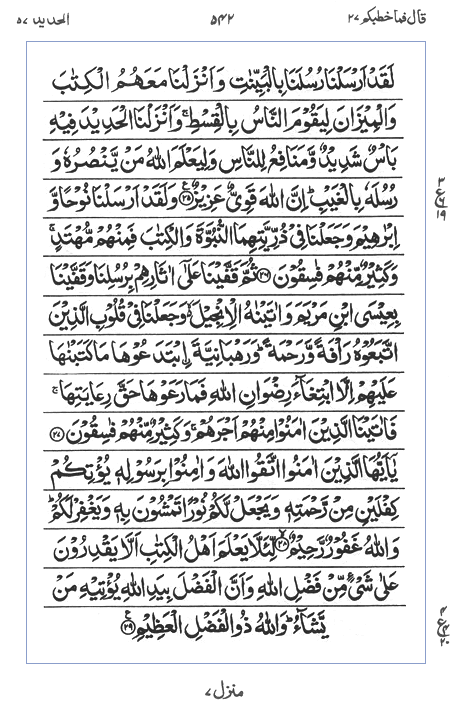 قال فما خطبكم ٢٧ ٥٤٢ الحديد ٥٧
لَقَدْ اَرْسَلْنَا رُسُلَنَا بِالْبَيِّنٰتِ وَ اَنْزَلْنَا مَعَهُمُ الْكِتٰبَ
وَالْمِيْزَانَ لِيَقُوْمَ النَّاسُ بِالْقِسْطِ ۚ وَ اَنْزَلْنَا الْحَدِيْدَ فِيْهِ
بَاْسٌ شَدِيْدٌ وَّ مَنَافِعُ لِلنَّاسِ وَلِيَعْلَمَ اللّٰهُ مَنْ يَّنْصُرُهٗ وَ
رُسُلَهٗ بِالْغَيْبِ ؕ اِنَّ اللّٰهَ قَوِيٌّ عَزِيْزٌ ﴿٢٥﴾ وَلَقَدْ اَرْسَلْنَا نُوْحًا وَّ
اِبْرٰهِيْمَ وَجَعَلْنَا فِيْ ذُرِّيَّتِهِمَا النُّبُوَّةَ وَالْكِتٰبَ فَمِنْهُمْ مُّهْتَدٍ ۚ
وَكَثِيْرٌ مِّنْهُمْ فٰسِقُوْنَ ﴿٢٦﴾ ثُمَّ قَفَّيْنَا عَلٰۤى اٰثَارِهِمْ بِرُسُلِنَا وَقَفَّيْنَا
بِعِيْسَى ابْنِ مَرْيَمَ وَاٰتَيْنٰهُ الْاِنْجِيْلَ ۙ وَجَعَلْنَا فِيْ قُلُوْبِ الَّذِيْنَ
اتَّبَعُوْهُ رَاْفَةً وَّرَحْمَةً ؕ وَرَهْبَانِيَّةَ ۨ ابْتَدَعُوْهَا مَا كَتَبْنٰهَا
عَلَيْهِمْ اِلَّا ابْتِغَآءَ رِضْوَانِ اللّٰهِ فَمَا رَعَوْهَا حَقَّ رِعَايَتِهَا ۚ
فَاٰتَيْنَا الَّذِيْنَ اٰمَنُوْا مِنْهُمْ اَجْرَهُمْ ۚ وَكَثِيْرٌ مِّنْهُمْ فٰسِقُوْنَ ﴿٢٧﴾
يٰۤاَيُّهَا الَّذِيْنَ اٰمَنُوا اتَّقُوا اللّٰهَ وَاٰمِنُوْا بِرَسُوْلِهٖ يُؤْتِكُمْ
كِفْلَيْنِ مِنْ رَّحْمَتِهٖ وَيَجْعَلْ لَّكُمْ نُوْرًا تَمْشُوْنَ بِهٖ وَيَغْفِرْ لَكُمْ ؕ
وَاللّٰهُ غَفُوْرٌ رَّحِيْمٌ ﴿٢٨﴾ لِّئَلَّا يَعْلَمَ اَهْلُ الْكِتٰبِ اَلَّا يَقْدِرُوْنَ
عَلٰى شَيْءٍ مِّنْ فَضْلِ اللّٰهِ وَاَنَّ الْفَضْلَ بِيَدِ اللّٰهِ يُؤْتِيْهِ مَنْ
يَّشَآءُ ؕ وَاللّٰهُ ذُو الْفَضْلِ الْعَظِيْمِ ﴿٢٩﴾
٣
ع ٦
١٩
٤
ع ٤
٢٠
منزل ٧